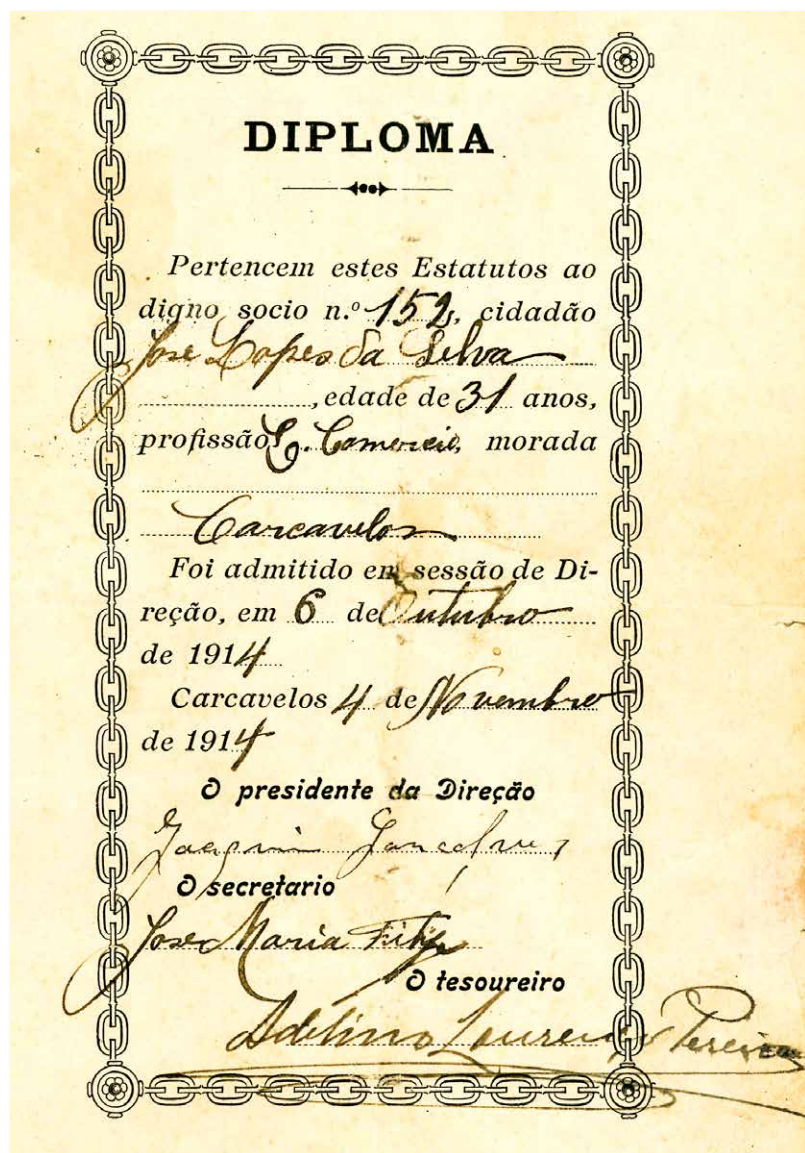 DIPLOMA
Pertencem estes Estatutos ao
digno socio n.º 152, cidadão
José Lopes da Silva
, edade de 31 anos,
profissão E. Comercio, morada
Carcavelos
Foi admitido em sessão de Di-
reção, em 6 de Outubro
de 1914
Carcavelos 4 de Novembro
de 1914
O presidente da Direção
Joaquim Gonçalves
O secretario
José Maria Filipe
O tesoureiro
Adelino Lourenço Pereira